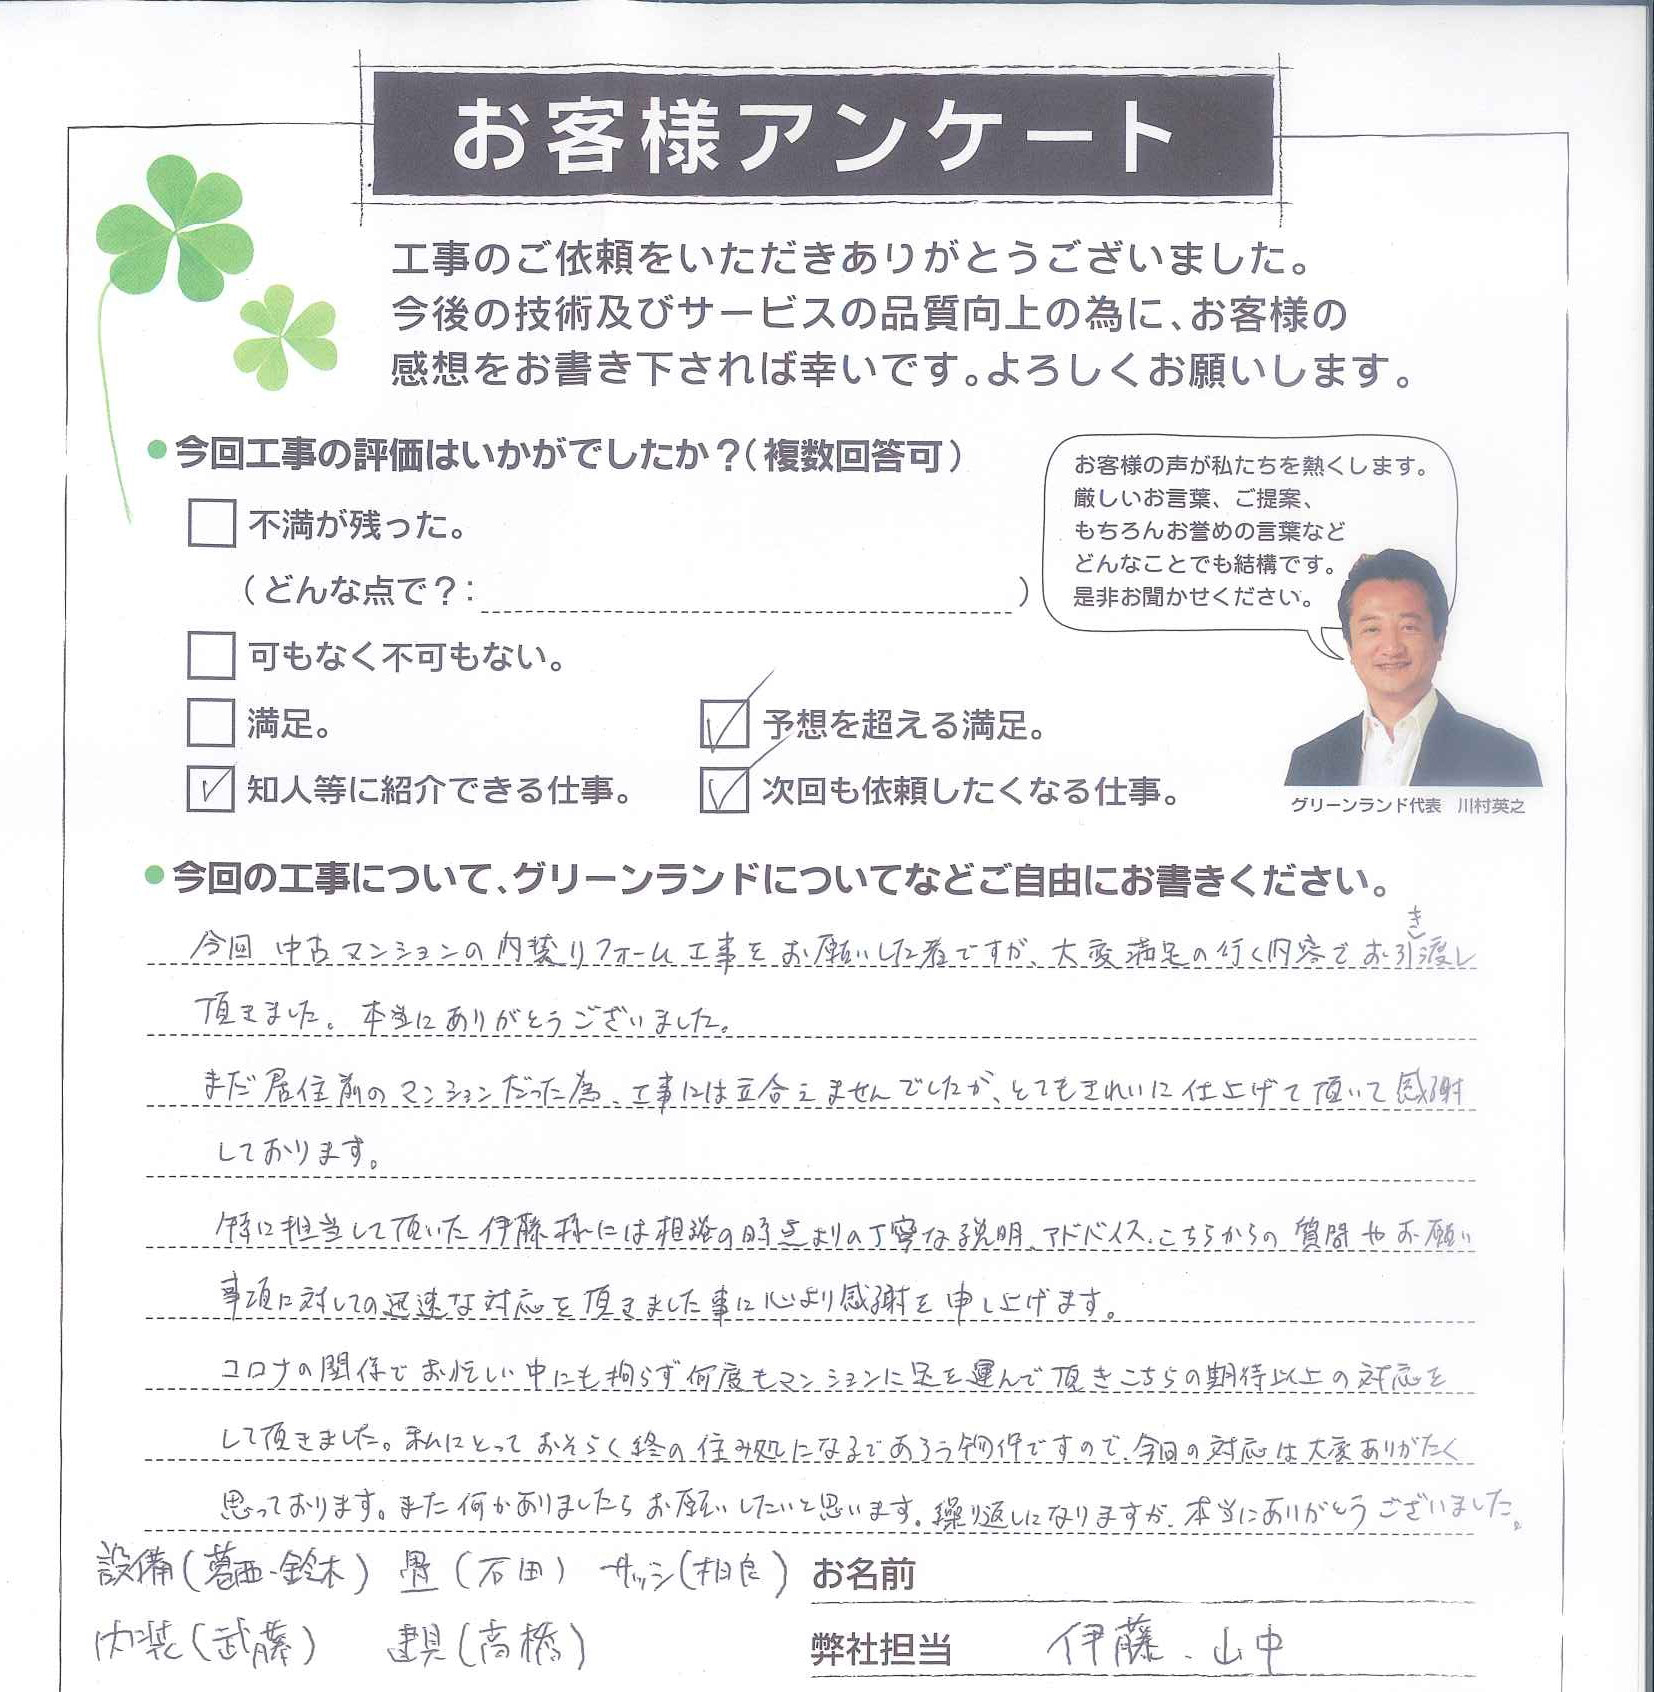 お客様アンケート
工事のご依頼をいただきありがとうございました。
今後の技術及びサービスの品質向上の為に、お客様の
感想をお書き下されば幸いです。よろしくお願いします。
今回工事の評価はいかがでしたか？（複数回答可）
不満が残った。
（どんな点で？：　）
可もなく不可もない。
満足。
予想を超える満足。
知人等に紹介できる仕事。
次回も依頼したくなる仕事。
お客様の声が私たちを熱くします。
厳しいお言葉、ご提案、
もちろんお誉めの言葉など
どんなことでも結構です。
是非お聞かせください。
グリーンランド代表　川村英之
今回の工事について、グリーンランドについてなどご自由にお書きください。
今回 中古マンションの内装リフォーム工事をお願いした者ですが、大変満足の行く内容でお引き渡し
頂きました。本当にありがとうございました。
まだ居住前のマンションだった為、工事には立合えませんでしたが、とてもきれいに仕上げて頂いて感謝
しております。
特に担当して頂いた伊藤様には相談の時点よりの丁寧な説明、アドバイス、こちらからの質問やお願い
事項に対しての迅速な対応を頂きました事に心より感謝を申し上げます。
コロナの関係でお忙しい中にも拘らず何度もマンションに足を運んで頂きこちらの期待以上の対応を
して頂きました。私にとっておそらく終の住み処になるであろう物件ですので、今回の対応は大変ありがたく
思っております。また何かありましたらお願いしたいと思います。繰り返しになりますが、本当にありがとうございました。
設備（葛西・鈴木）畳（石田）サッシ（相良）
お名前
内装（武藤）建具（高橋）
弊社担当　伊藤、山中